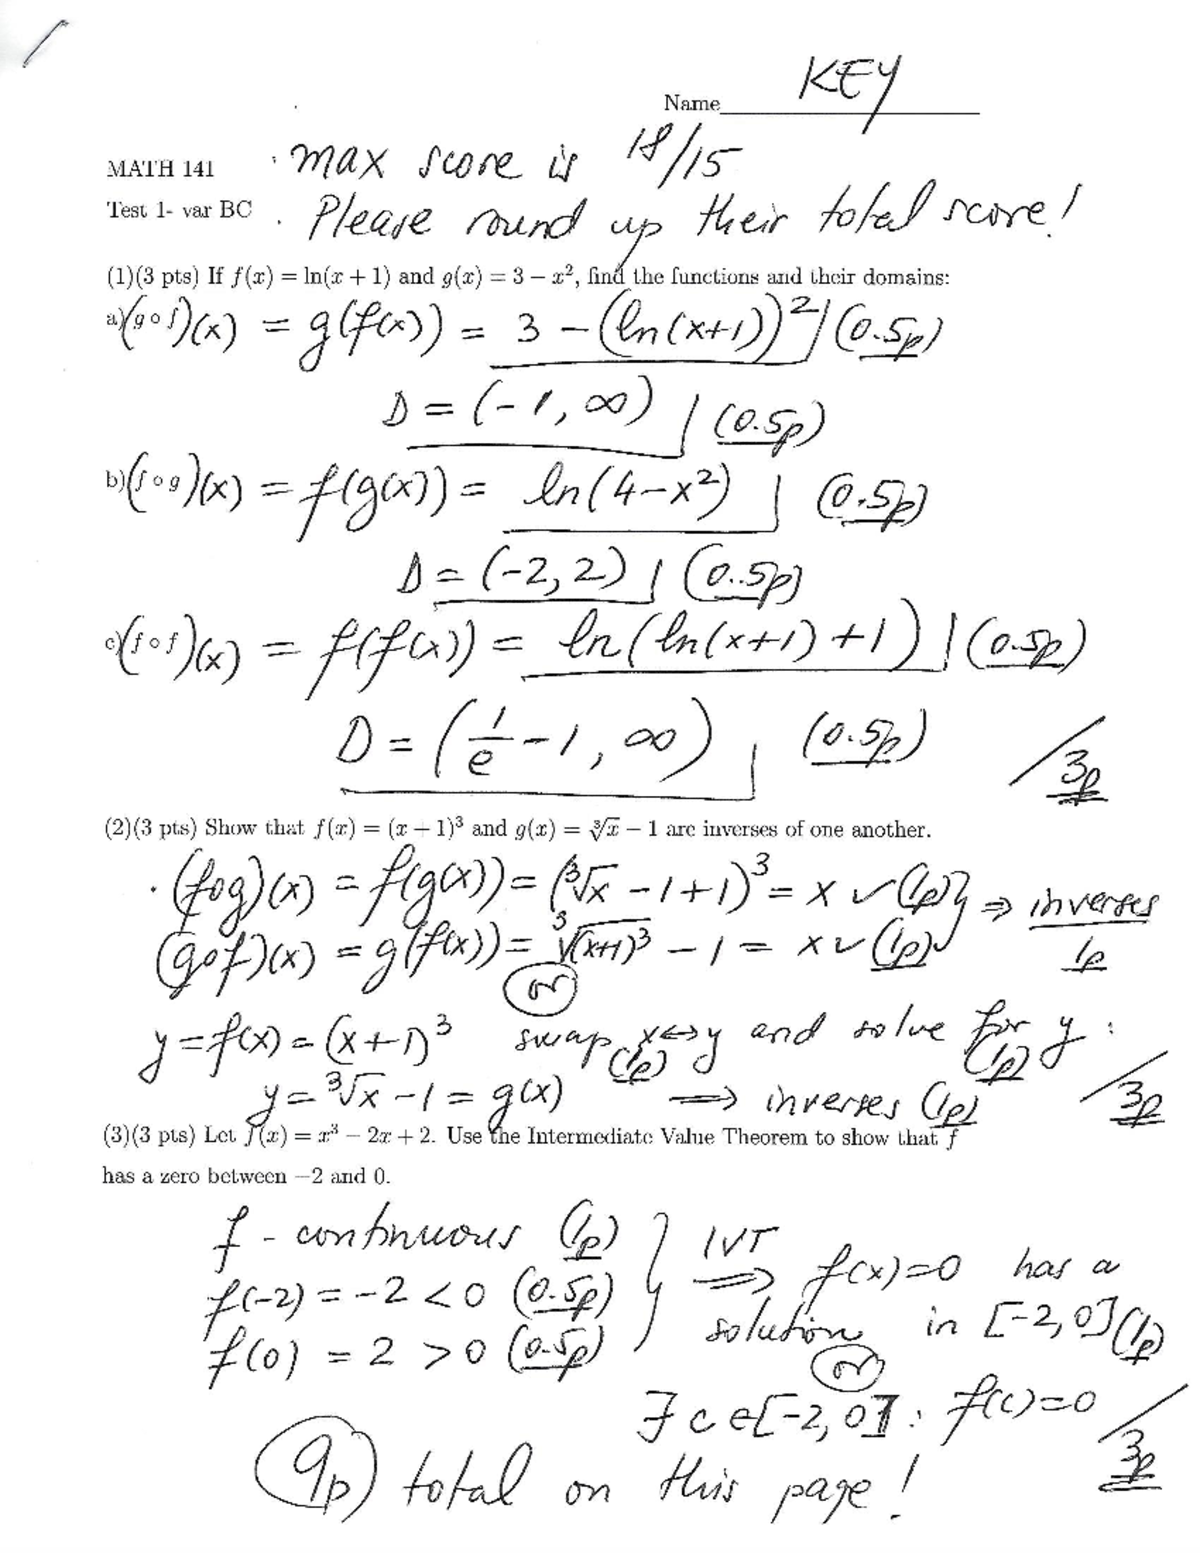 Name KEY
MATH 141 · max score is 18/15
Test 1- var BC · Please round up their total score!
(1)(3 pts) If f(x) = ln(x + 1) and g(x) = 3 − x², find the functions and their domains:
a)(g∘f)(x) = g(f(x)) = 3 − (ln(x+1))² (0.5p)
D = (-1, ∞) (0.5p)
b)(f∘g)(x) = f(g(x)) = ln(4−x²) (0.5p)
D = (-2, 2) (0.5p)
c)(f∘f)(x) = f(f(x)) = ln(ln(x+1)+1) (0.5p)
D = (1/e −1, ∞) (0.5p) /3p
(2)(3 pts) Show that f(x) = (x + 1)³ and g(x) = ∛x − 1 are inverses of one another.
· (f∘g)(x) = f(g(x)) = (∛x −1+1)³ = x ✓ (1p) } ⇒ inverses
(g∘f)(x) = g(f(x)) = ∛(x+1)³ − 1 = x ✓ (1p) 1p
or
y = f(x) = (x+1)³ swap x↔y and solve for y :
(1p) (1p)
y = ∛x −1 = g(x) ⇒ inverses (1p) /3p
(3)(3 pts) Let f(x) = x³ − 2x + 2. Use the Intermediate Value Theorem to show that f
has a zero between −2 and 0.
f - continuous (1p) } IVT
f(-2) = -2 < 0 (0.5p) ⇒ f(x)=0 has a
f(0) = 2 > 0 (0.5p) solution in [-2, 0] (1p)
or
∃ c ∈ [-2, 0] : f(c)=0 /3p
9p total on this page!